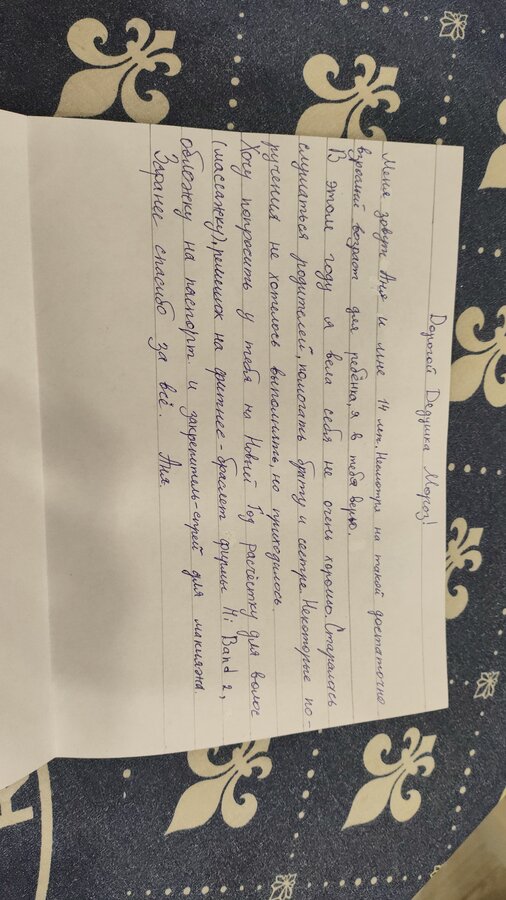 Дорогой Дедушка Мороз!
Меня зовут Аня и мне 14 лет. Несмотря на такой достаточно
взрослый возраст для ребёнка, я в тебя верю.
В этом году я вела себя не очень хорошо. Старалась
слушаться родителей, помогать брату и сестре. Некоторые по-
ручения не хотелось выполнять, но приходилось.
Хочу попросить у тебя на Новый Год расчёстку для волос
(массажку), ремешок на фитнес-браслет фирмы Mi Band 2,
обложку на паспорт и закрепитель-спрей для макияжа
Заранее спасибо за всё! Аня